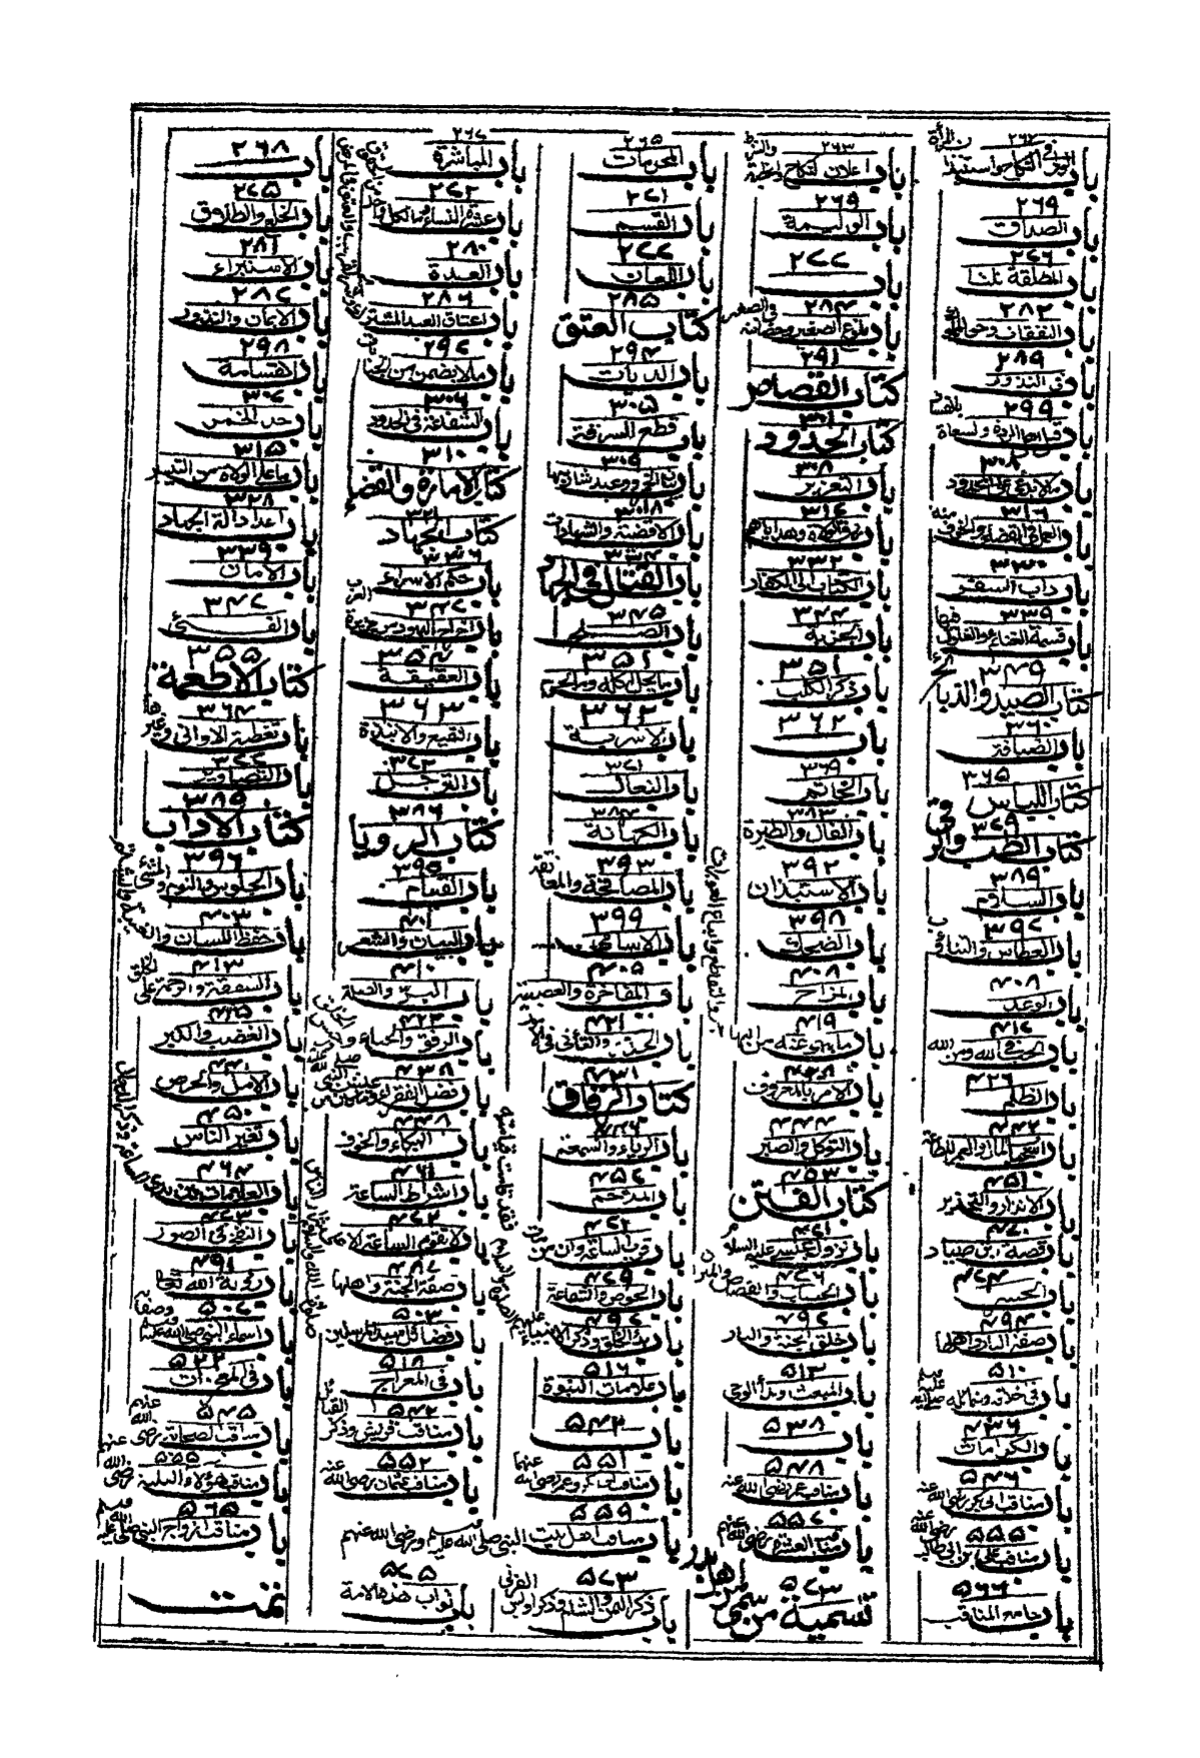 باب الولي في النكاح واستيذان المرأة
۲۶۳
باب اعلان النكاح والخطبة والشرط
۲۶۵
باب المحرمات
۲۶۷
باب المباشرة
۲۶۸
باب
۲۶۹
باب الصداق
۲۶۹
باب الوليمة
۲۷۱
باب القسم
۲۷۲
باب عشرة النساء
۲۷۵
باب الخلع والطلاق
۲۷۶
باب المطلقة ثلثا
۲۷۷
باب
۲۷۷
باب اللعان
۲۸۰
باب العدة
۲۸۱
باب الاستبراء
باب النفقات وحق المملوك
باب بلوغ الصغير وحضانته في الصغر
۲۸۵
كتاب العتق
۲۸۶
باب اعتاق العبد المشترك
۲۸۷
باب الايمان والنذور
۲۸۹
باب في النذور
۲۹۱
كتاب القصاص
۲۹۴
باب الديات
باب مالا يضمن من الجنايات
۲۹۸
باب القسامة
۲۹۹
باب قتل اهل الردة والسعاة بالفساد
۳۰۱
كتاب الحدود
۳۰۵
باب قطع السرقة
۳۰۶
باب الشفاعة في الحدود
باب حد الخمر
۳۰۸
باب مالا يدعى على المحدود
۳۰۸
باب التعزير
۳۰۹
باب بيان الخمر ووعيد شاربها
۳۱۰
كتاب الامارة والقضاء
۳۱۵
باب ما على الولاة من التيسير
۳۱۶
باب العمل في القضاء والخوف منه
باب رزق الولاة وهداياهم
باب الاقضية والشهادات
۳۲۱
كتاب الجهاد
۳۲۸
باب اعداد الة الجهاد
باب داب السفر
۳۳۲
باب الكتاب الى الكفار
باب القتال في الجهاد
۳۳۶
باب حكم الاسراء
باب الامان
۳۳۹
باب قسمة الغنائم والغلول فيها
۳۴۴
باب الجزية
۳۴۵
باب الصلح
۳۴۷
باب اخراج اليهود من جزيرة العرب
۳۴۷
باب الفيء
۳۴۹
كتاب الصيد والذبائح
۳۵۱
باب ذكر الكلب
۳۵۱
باب مايحل اكله وما يحرم
باب العقيقة
۳۵۵
كتاب الاطعمة
۳۶۰
باب الضيافة
۳۶۲
باب
۳۶۲
باب الاشربة
۳۶۳
باب النقيع والانبذة
۳۶۴
باب تغطية الاواني وغيرها
۳۶۵
كتاب اللباس
۳۶۹
باب الخاتم
۳۷۱
باب النعال
۳۷۳
باب الترجل
باب التصاوير
۳۷۹
كتاب الطب والرقى
۳۸۳
باب الفال والطيرة
۳۸۴
باب الكهانة
۳۸۶
كتاب الرويا
۳۸۹
كتاب الاداب
۳۸۹
باب السلام
۳۹۲
باب الاستيذان
۳۹۳
باب المصافحة والمعانقة
۳۹۵
باب القيام
۳۹۶
باب الجلوس والنوم والمشي
۳۹۷
باب العطاس والتثاؤب
۳۹۸
باب الضحك
۳۹۹
باب الاسامي
باب البيان والشعر
باب حفظ اللسان والغيبة والشتم
۴۰۸
باب الوعد
۴۰۸
باب المزاح
۴۰۵
باب المفاخرة والعصبية
۴۱۰
باب البر والصلة
۴۱۳
باب الشفقة والرحمة على الخلق
۴۱۷
باب الحب في الله ومن الله
۴۱۹
باب ماينهى عنه من التهاجر والتقاطع واتباع العورات
۴۲۱
باب الحذر والتاني في الامور
۴۲۳
باب الرفق والحياء وحسن الخلق
باب الغضب والكبر
۴۲۶
باب الظلم
باب الامر بالمعروف
۴۳۱
كتاب الرقاق
۴۳۸
باب فضل الفقراء وما كان من عيش النبي صلى الله عليه وسلم
باب الامل والحرص
باب استحباب المال والعمر للطاعة
۴۴۴
باب التوكل والصبر
باب الرياء والسمعة
۴۴۸
باب البكاء والخوف
۴۵۰
باب تغير الناس
۴۵۱
باب الانذار والتحذير
۴۵۳
كتاب الفتن
۴۵۶
باب الملاحم
۴۶۱
باب اشراط الساعة
۴۶۴
باب العلامات بين يدي الساعة وذكر الدجال
۴۷۰
باب قصة ابن صياد
۴۷۱
باب نزول عيسى عليه السلام
۴۷۲
باب قرب الساعة وان من مات فقد قامت قيامته
۴۷۲
باب لاتقوم الساعة الا على شرار الناس
۴۷۳
باب النفخ في الصور
۴۷۴
باب الحشر
۴۷۶
باب الحساب والقصاص والميزان
۴۷۹
باب الحوض والشفاعة
۴۸۷
باب صفة الجنة واهلها
۴۹۱
باب رؤية الله تعالى
۴۹۴
باب صفة النار واهلها
۴۹۲
باب خلق الجنة والنار
۴۹۷
باب بدء الخلق وذكر الانبياء عليهم الصلوة والسلام
۵۰۳
باب فضائل سيد المرسلين
۵۰۷
باب اسماء النبي صلى الله عليه وسلم وصفاته
۵۱۰
باب في خلاقه وشمائله صلى الله عليه وسلم
۵۱۳
باب المبعث وبدأ الوحي
۵۱۶
باب علامات النبوة
۵۱۸
باب في المعراج
۵۲۲
باب في المعجزات
باب الكرامات
۵۳۸
باب
۵۴۲
باب
۵۴۲
باب مناقب قريش وذكر القبائل
۵۴۵
باب مناقب الصحابة رضي الله عنهم
۵۴۶
باب مناقب ابي بكر رضي الله عنه
۵۴۸
باب مناقب عمر رضي الله عنه
۵۵۱
باب مناقب ابي بكر وعمر رضي الله عنهما
۵۵۲
باب مناقب عثمان رضي الله عنه
باب مناقب هؤلاء الثلثة رضي الله عنهم
۵۵۵
باب مناقب علي بن ابي طالب رضي الله عنه
باب مناقب العشرة رضي الله عنهم
۵۵۹
باب مناقب اهل بيت النبي صلى الله عليه وسلم ورضي الله عنهم
۵۶۵
باب مناقب ازواج النبي صلى الله عليه وسلم
۵۶۶
باب جامع المناقب
۵۷۳
تسمية من سمي من اهل بدر
۵۷۳
باب ذكر اليمن والشام وذكر اويس القرني
۵۷۵
باب ثواب هذه الامة
تمت